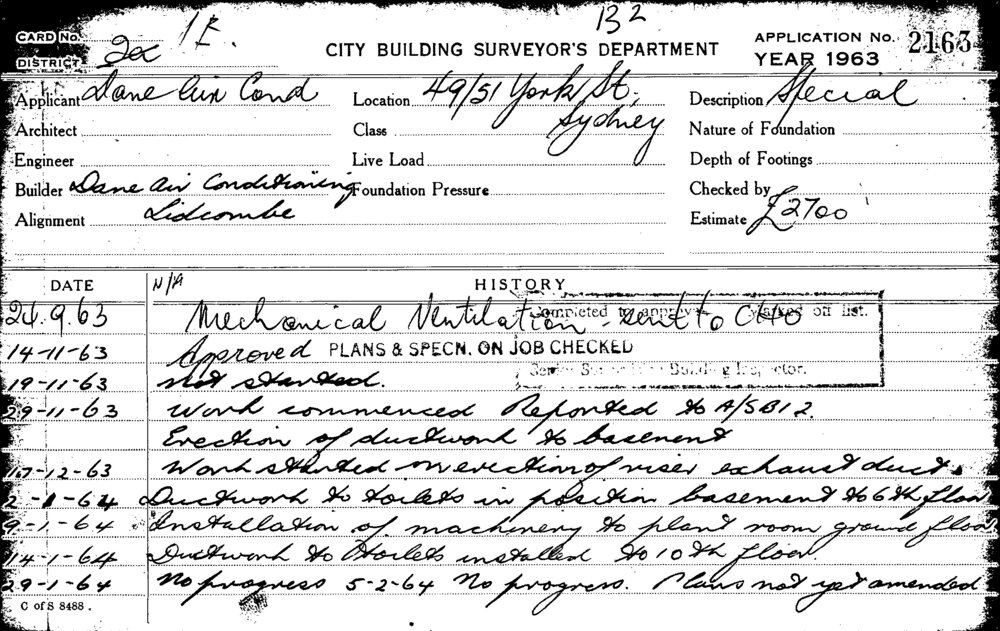 1E. 132
CARD No. CITY BUILDING SURVEYOR'S DEPARTMENT APPLICATION No. 2163
DISTRICT YEAR 1963
Applicant Dane Air Cond Location 49/51 York St, Description Special
Architect Class Sydney Nature of Foundation
Engineer Live Load Depth of Footings
Builder Dane Air Conditioning Foundation Pressure Checked by
Alignment Lidcombe Estimate £2700
DATE N/A HISTORY
24.9.63 Mechanical Ventilation - sent to CHO
Completed to approval Marked off list.
14-11-63 Approved PLANS & SPECN. ON JOB CHECKED
19-11-63 Not started.
Senior Building Inspector.
29-11-63 Work commenced Reported to A/SBI 2.
Erection of ductwork to basement
17-12-63 Work started on erection of riser exhaust duct.
2-1-64 Ductwork to toilets in position basement to 6th floor
9-1-64 Installation of machinery to plant room ground floor
14-1-64 Ductwork to toilets installed to 10th floor.
29-1-64 No progress 5-2-64 No progress. Plans not yet amended
C of S 8488.